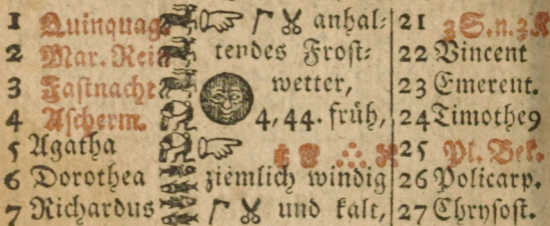 1 Quinquag. anhal⸗ 21 3 S. n. 3 K
2 Mar. Rein tendes Frost⸗ 22 Vincent
3 Fastnacht wetter, 23 Emerent.
4 Ascherm. 4, 44. früh, 24 Timothe9
5 Agatha 25 Pl. Bek.
6 Dorothea ziemlich windig 26 Policarp.
7 Richardus und kalt, 27 Chrysost.